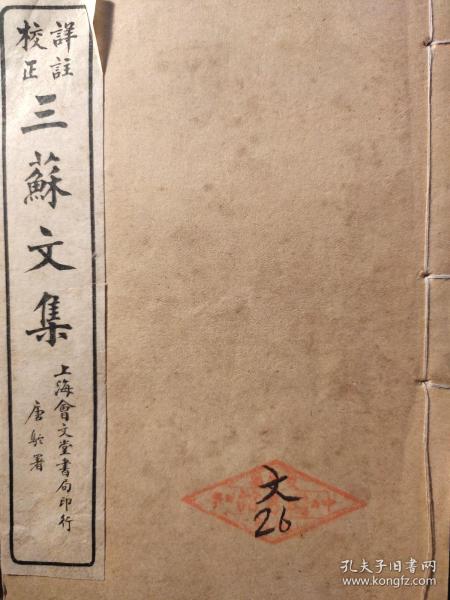 詳註
校正
三蘇文集
上海會文堂書局印行
唐駝署
文
26
孔夫子旧书网
www.kongfz.com